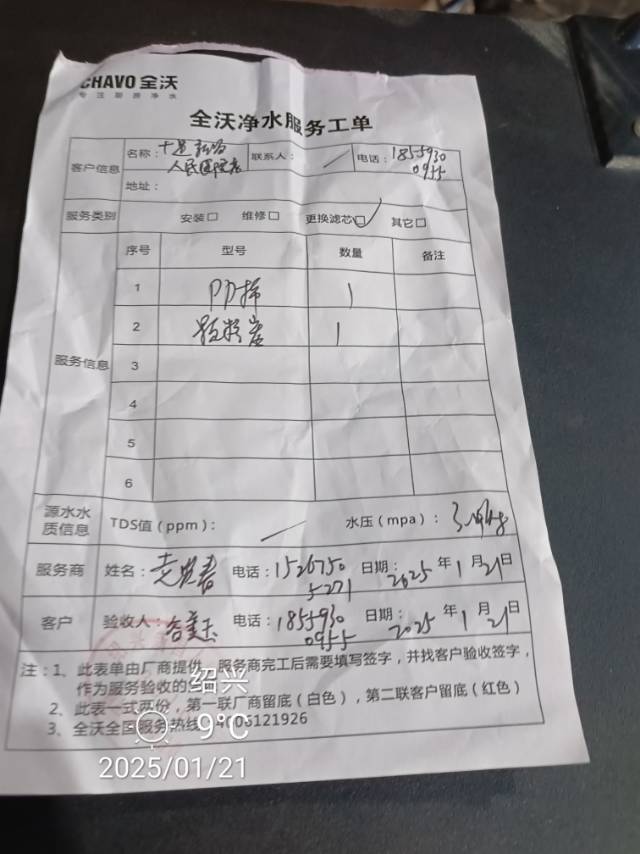 CHAVO 全沃
专注厨房净水
全沃净水服务工单
客户信息
名称：
人民医院
联系人：
电话：1855930
0955
地址：
服务类别 安装□ 维修□ 更换滤芯□ 其它□
服务信息
序号 型号 数量 备注
1 PP棉 1
2 颗粒炭 1
3
4
5
6
源水水
质信息
TDS值（ppm）： 水压（mpa）：
服务商 姓名： 电话：1526750
5271
日期：2025 年 1 月 21 日
客户 验收人： 电话：1855930
0955
日期：2025 年 1 月 21 日
注：1、此表单由厂商提供，服务商完工后需要填写签字，并找客户验收签字，
作为服务验收的
2、此表一式两份，第一联厂商留底（白色），第二联客户留底（红色）
3、全沃全国服务热线 4006121926
绍兴
9℃
2025/01/21